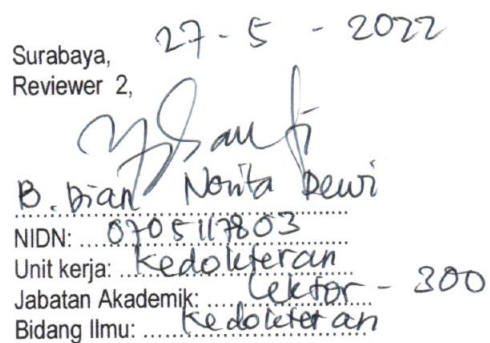 Surabaya, 27 - 5 - 2022
Reviewer 2,
B. Dian Novita Dewi
NIDN: 0705117803
Unit kerja: Kedokteran
Jabatan Akademik: Lektor - 300
Bidang Ilmu: Kedokteran